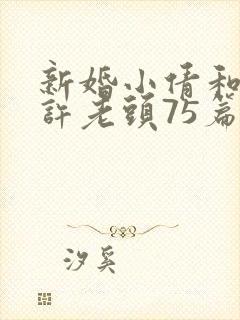 新婚小倩和
許老頭75篇
汐奚